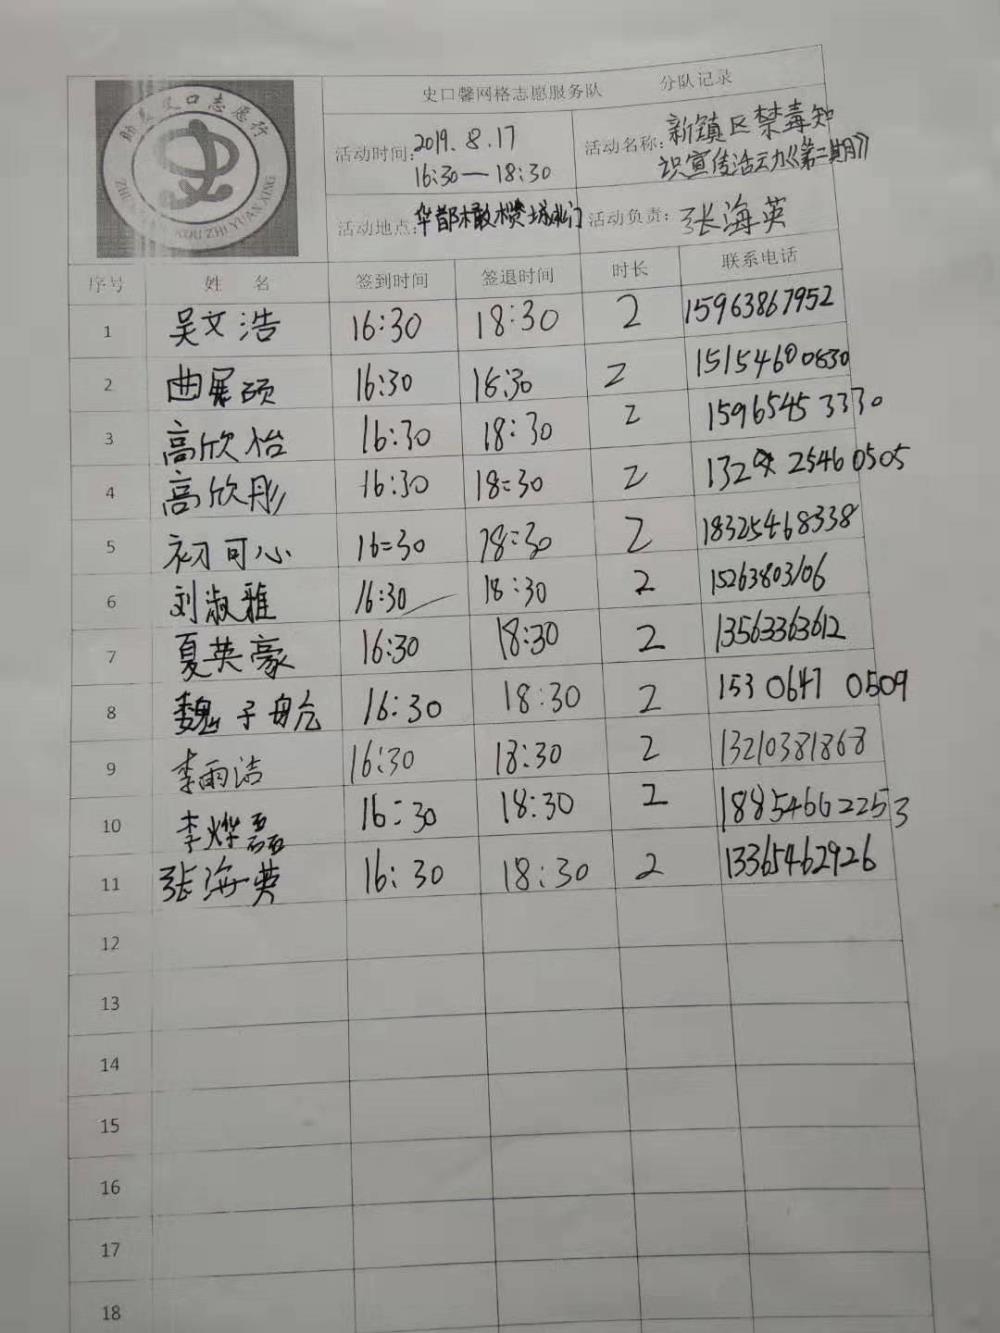 史口馨网格志愿服务队 分队记录
活动时间: 2019.8.17
16:30—18:30
活动名称: 新镇区禁毒知
识宣传活动《第二期》
活动地点: 华都橄榄城北门
活动负责: 张海英
史口志愿行
ZHI YUAN XING
序号 姓 名 签到时间 签退时间 时长 联系电话
1 吴文浩 16:30 18:30 2 15963867952
2 曲展硕 16:30 18:30 2 15154600830
3 高欣怡 16:30 18:30 2 15965453330
4 高欣彤 16:30 18:30 2 132 25460505
5 初可心 16:30 18:30 2 18325468338
6 刘淑雅 16:30 18:30 2 15263803106
7 夏英豪 16:30 18:30 2 13563363612
8 魏子航 16:30 18:30 2 153 0647 0509
9 李雨洁 16:30 18:30 2 13210381868
10 李烨磊 16:30 18:30 2 18854662253
11 张海英 16:30 18:30 2 13365462926
12
13
14
15
16
17
18